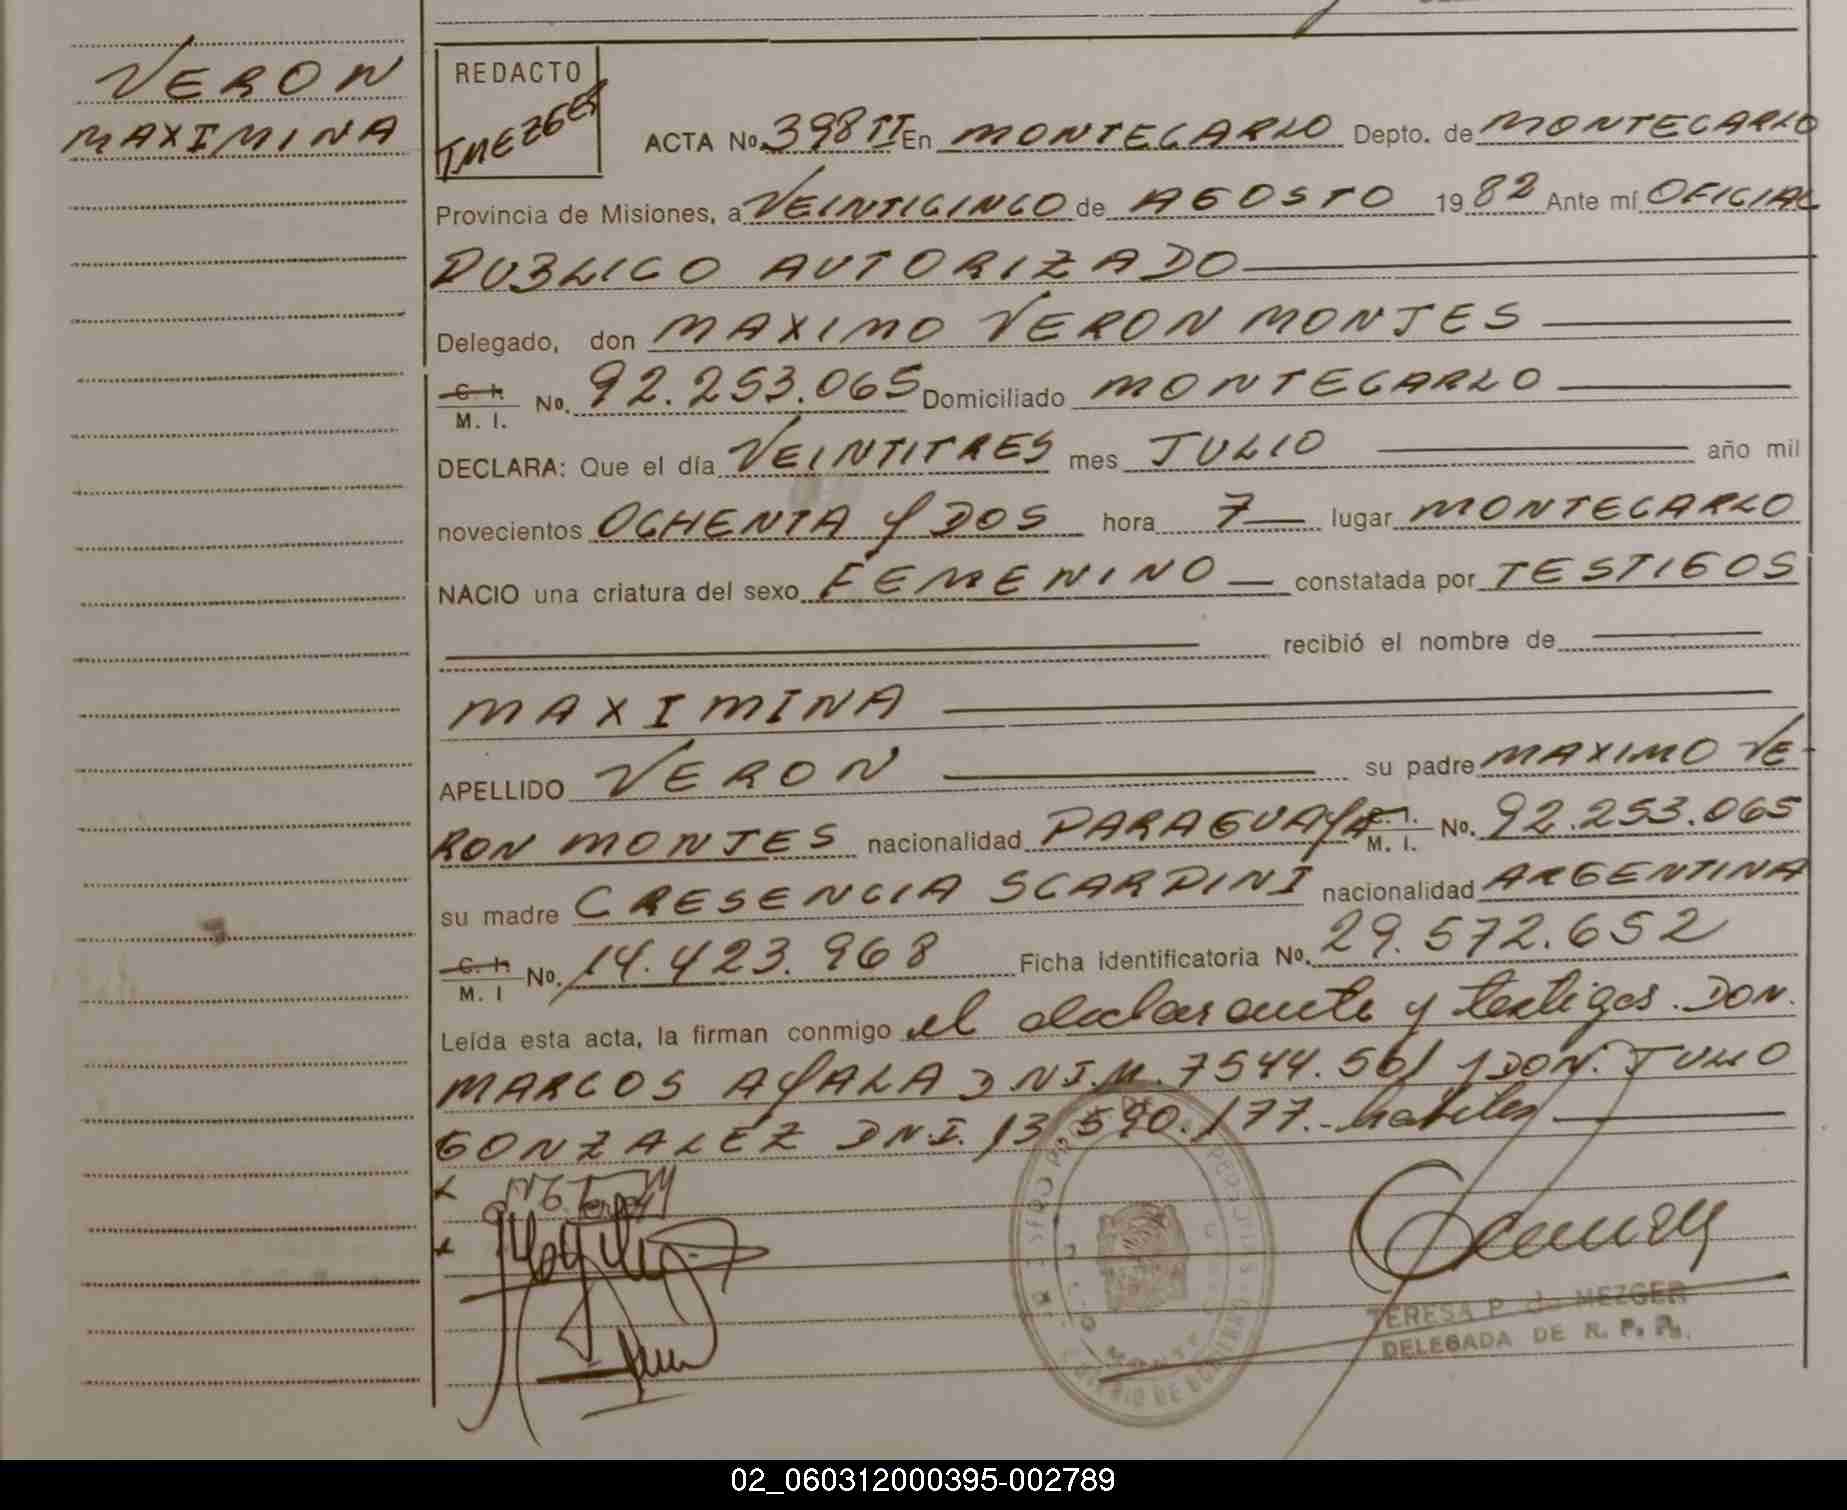 VERON
MAXIMINA
REDACTO
TMEZGER
ACTA No. 398 II En MONTECARLO Depto. de MONTECARLO
Provincia de Misiones, a VEINTICINCO de AGOSTO 1982 Ante mí OFICIAL
PUBLICO AUTORIZADO
Delegado, don MAXIMO VERON MONTES
C. I. M. I. No. 92.253.065 Domiciliado MONTECARLO
DECLARA: Que el día VEINTITRES mes JULIO año mil
novecientos OCHENTA Y DOS hora 7 lugar MONTECARLO
NACIO una criatura del sexo FEMENINO constatada por TESTIGOS
recibió el nombre de
MAXIMINA
APELLIDO VERON su padre MAXIMO VE-
RON MONTES nacionalidad PARAGUAYA C. I. M. I. No. 92.253.065
su madre CRESENCIA SCARPINI nacionalidad ARGENTINA
C. I. M. I No. 14.423.968 Ficha identificatoria No. 29.572.652
Leída esta acta, la firman conmigo el declarante y testigos. DON.
MARCOS AYALA DNI.M. 7544.561 y DON. JULIO
GONZALEZ DNI. 13.590.177.- habiles
TERESA P. de MEZGER
DELEGADA DE R. P. P.
02_060312000395-002789